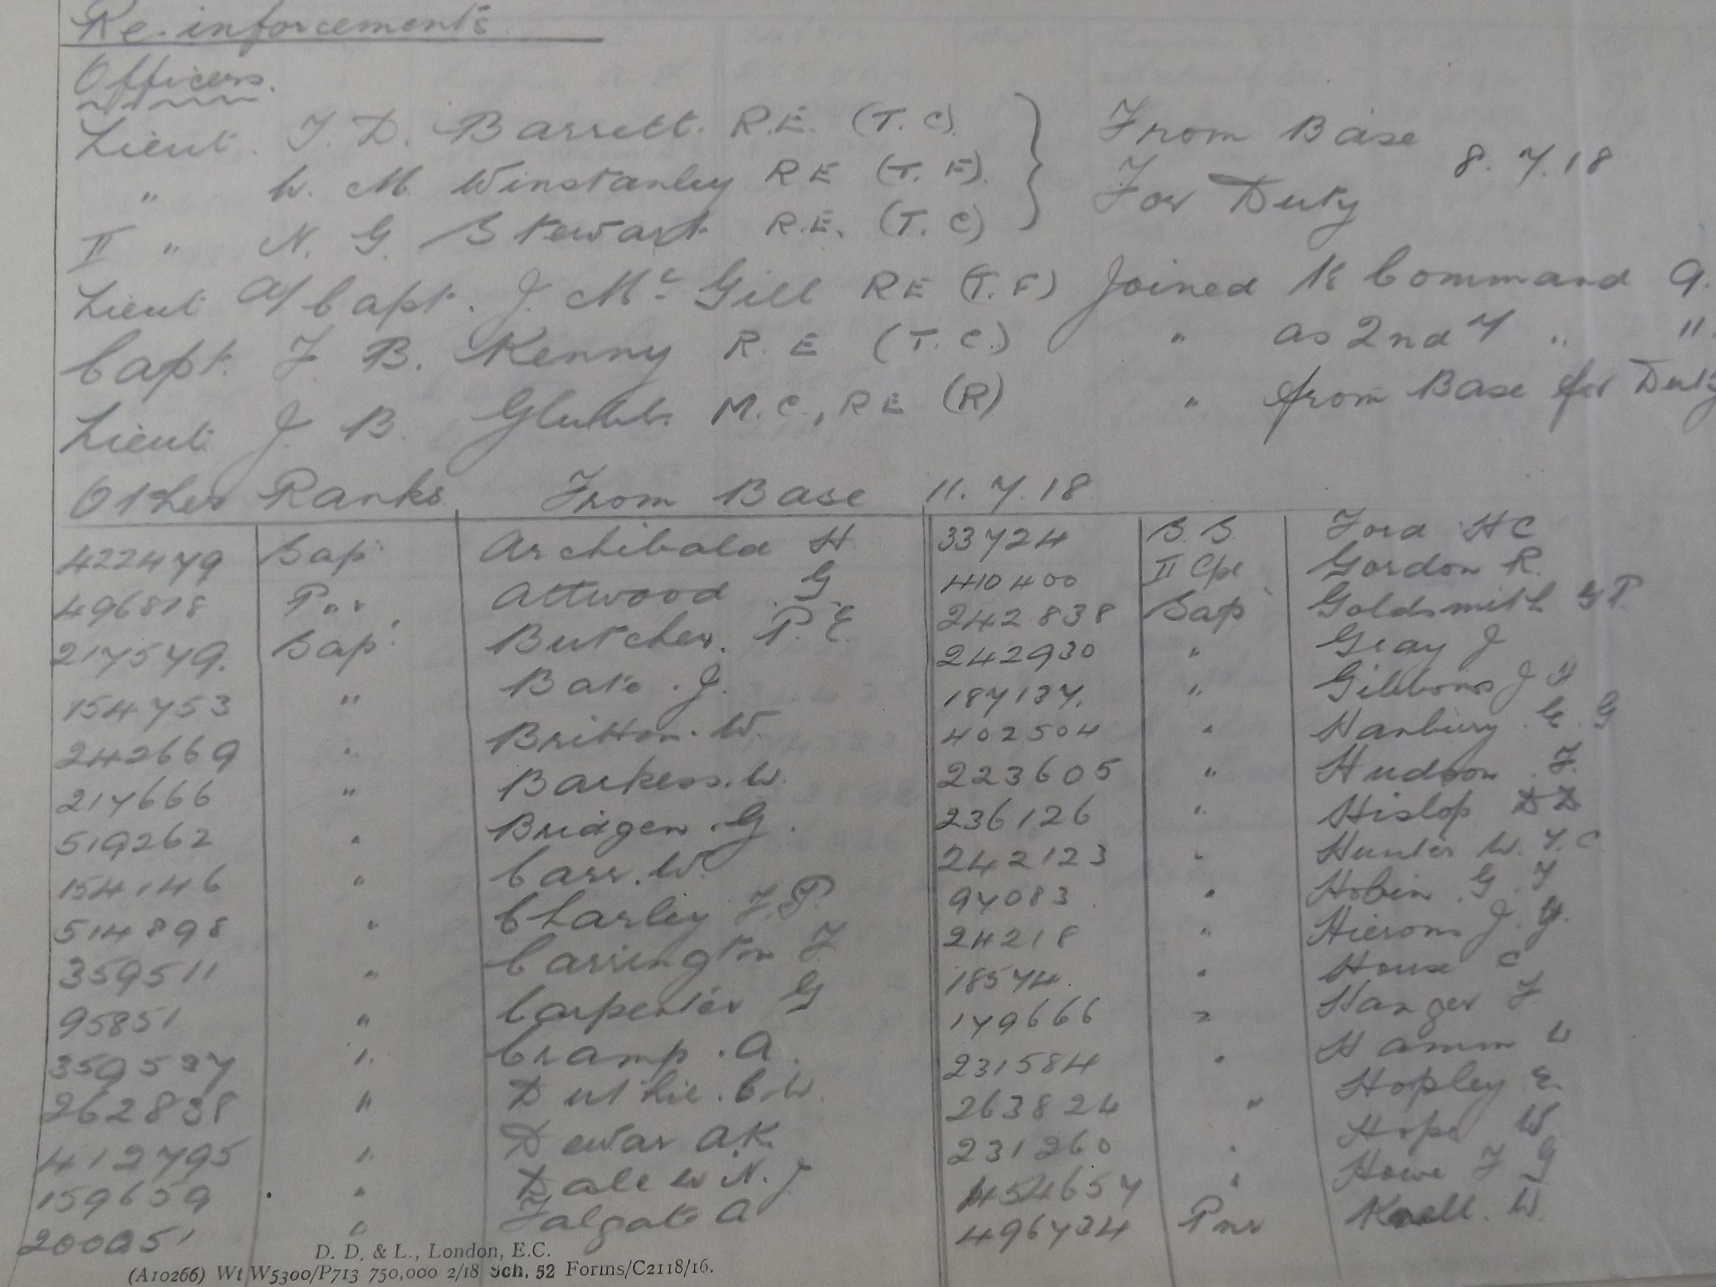 Re-inforcements
Officers.
Lieut. T. D. Barrett. R.E. (T.C). From Base
" W. M. Winstanley R E (T. F). For Duty 8.7.18
II " N. G. Stewart R.E. (T. C)
Lieut A/Capt. J. Mc Gill RE (T.F) Joined to Command 9.
Capt. F. B. Kenny R.E (T.C.) " as 2nd " "
Lieut J. B. Glubb. M.C., RE (R) " from Base for Duty
Other Ranks From Base 11.7.18
422479 Sap Archibald H 33724 S.S. Ford HC
496818 Pnr Attwood G 410400 II Cpl Gordon R.
217579. Sap. Butcher. P.E. 242838 Sap Goldsmith G P.
154753 " Bate. J. 242930 " Gray J
242669 " Britton. W. 187137. " Gibbons J
217666 " Barkess. W. 402504 " Hanbury. E. G
519262 " Bridgen. G. 223605 " Hudson. F.
154146 " Carr. W. 236126 " Hislop D D
514898 " Charley F. P. 242123 " Hunter W. T. C
359511 " Carrington F 97083 " Hobin. G. F
95851 " Carpenter G 24218 " Hierons J.
359537 " Cramp. A. 18574. " House C
262838 " Duthie. C. W. 179666 " Hanger F
412795 " Dewar A.K. 231584 " Hamm W
159659 " Dale W. N. J 263824 " Hopley E.
200251 " Falgate A 231260 " Hope W
454657 " Howe F G
496734 Pnr Knell. W.
D. D. & L., London, E.C.
(A10266) Wt W5300/P713 750,000 2/18 Sch. 52 Forms/C2118/16.